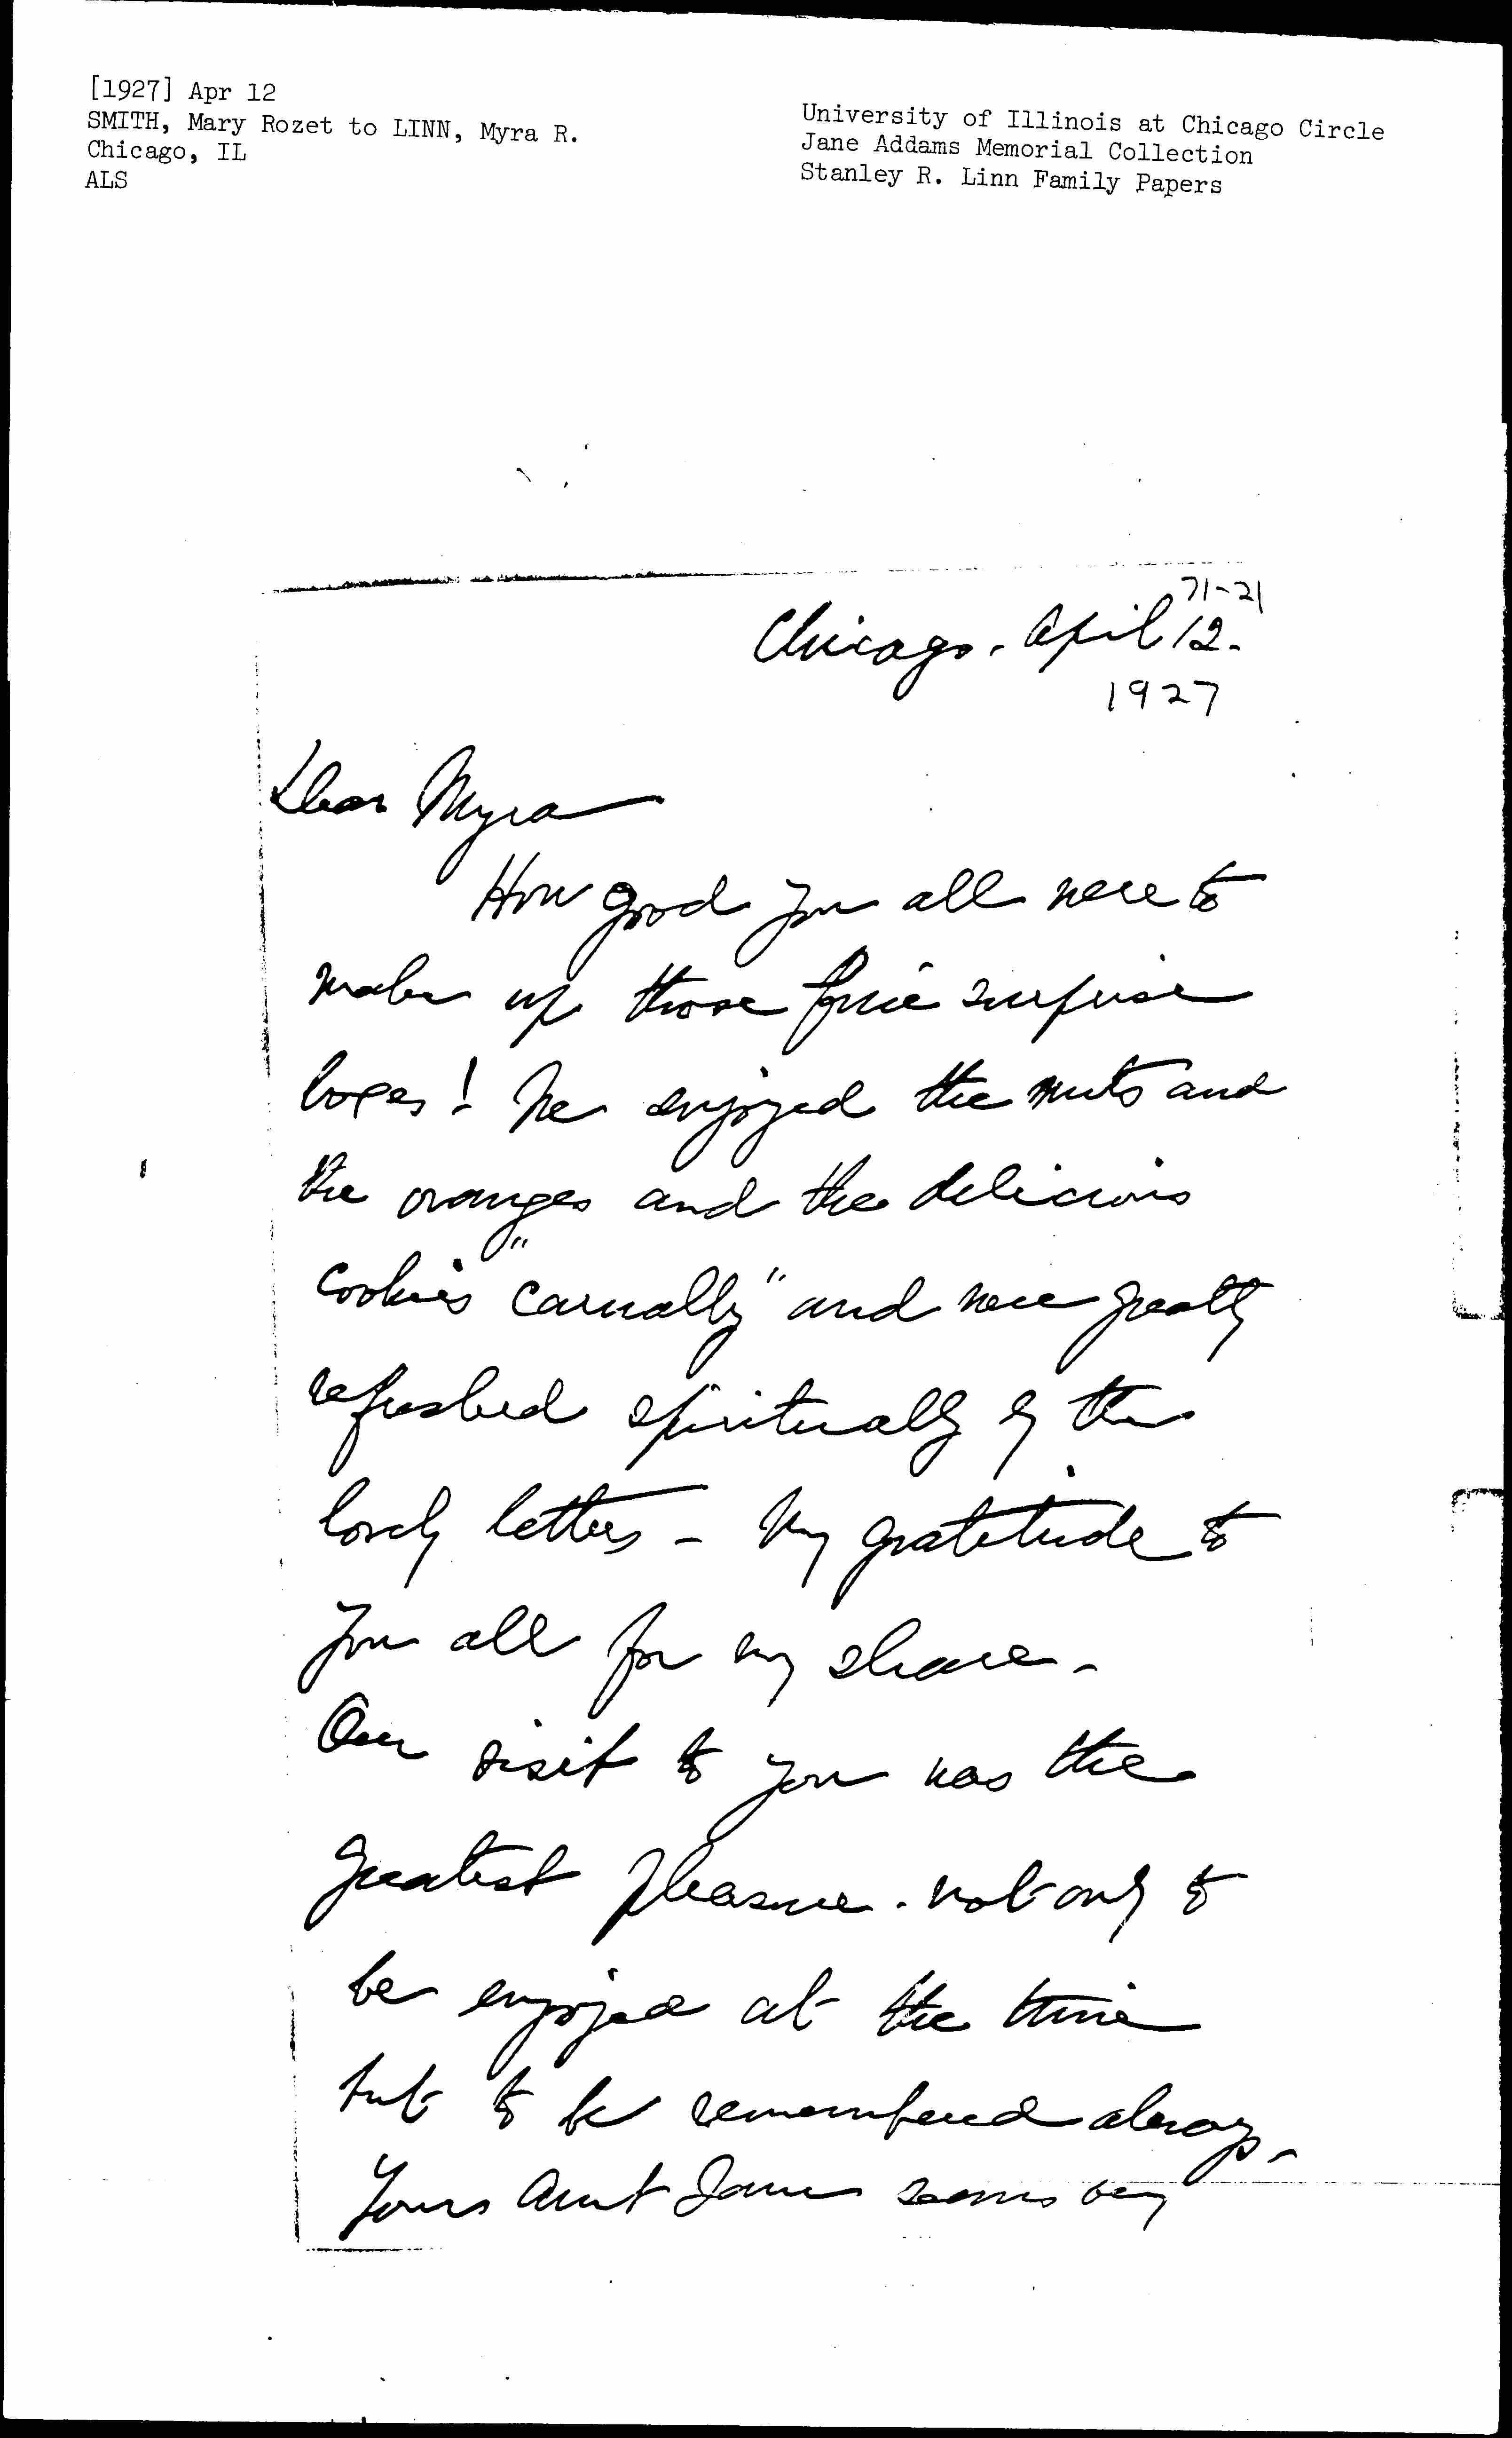 [1927] Apr 12
SMITH, Mary Rozet to LINN, Myra R.
Chicago, IL
ALS
University of Illinois at Chicago Circle
Jane Addams Memorial Collection
Stanley R. Linn Family Papers
71-21
Chicago. April 12.
1927
Dear Myra
How good you all were to
make up those fine surprise
boxes! We enjoyed the nuts and
the oranges and the delicious
cookies "carnally" and were greatly
refreshed spiritually by the
lovely letters - My gratitude to
you all for my share -
Our visit to you was the
greatest pleasure - not only to
be enjoyed at the time
but to be remembered always -
Yours Aunt Jane seems very